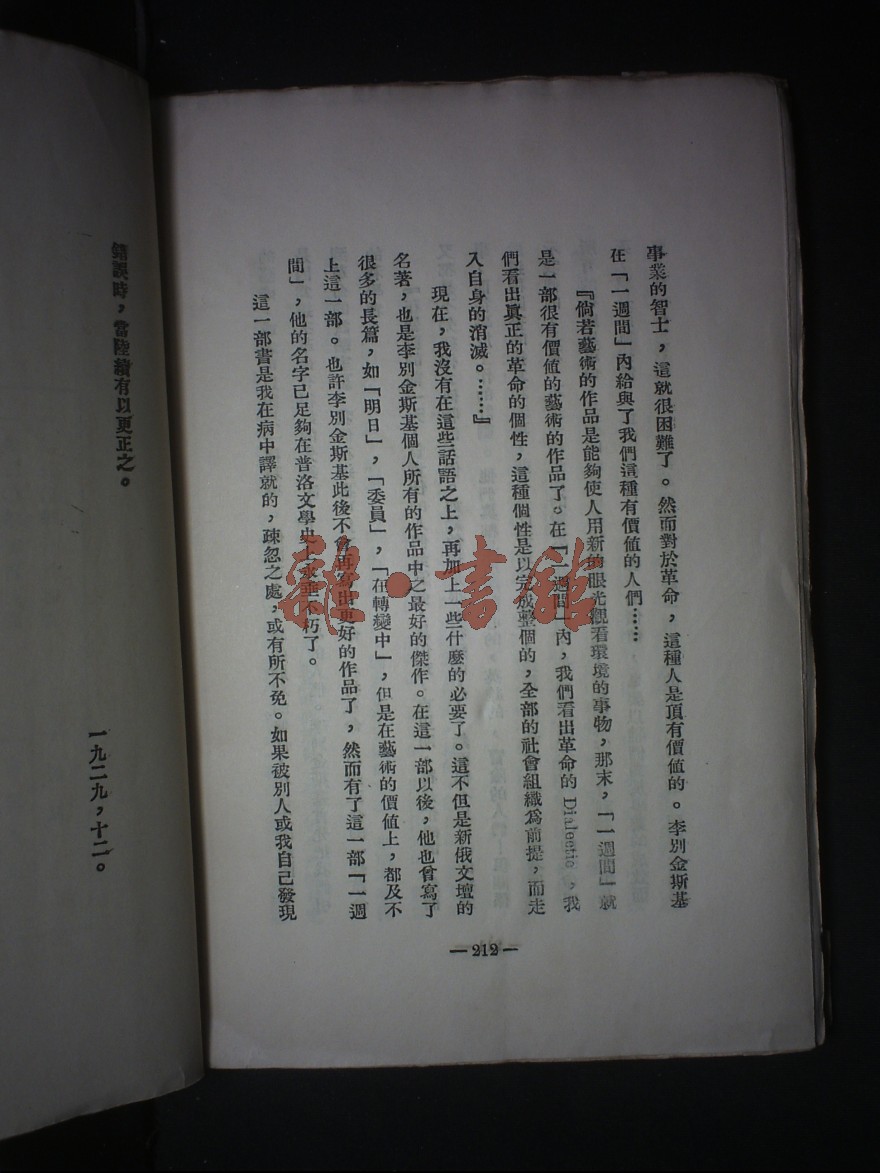 事業的智士，這就很困難了。然而對於革命，這種人是頂有價値的。李別金斯基
在「一週間」內給與了我們這種有價値的人們……
『倘若藝術的作品是能夠使人用新的眼光觀看環境的事物，那末，「一週間」就
是一部很有價値的藝術的作品了。在「一週間」內，我們看出革命的 Dialectic，我
們看出眞正的革命的個性，這種個性是以完成整個的，全部的社會組織爲前提，而走
入自身的消滅。……』
現在，我沒有在這些話語之上，再加上一些什麼的必要了。這不但是新俄文壇的
名著，也是李別金斯基個人所有的作品中之最好的傑作。在這一部以後，他也曾寫了
很多的長篇，如「明日」，「委員」，「在轉變中」，但是在藝術的價値上，都及不
上這一部。也許李別金斯基此後不會再寫出更好的作品了，然而有了這一部「一週
間」，他的名字已足夠在普洛文學史上永垂不朽了。
這一部書是我在病中譯就的，疎忽之處，或有所不免。如果被別人或我自己發現
— 212 —
錯誤時，當陸續有以更正之。
一九二九，十二。
雜·書館